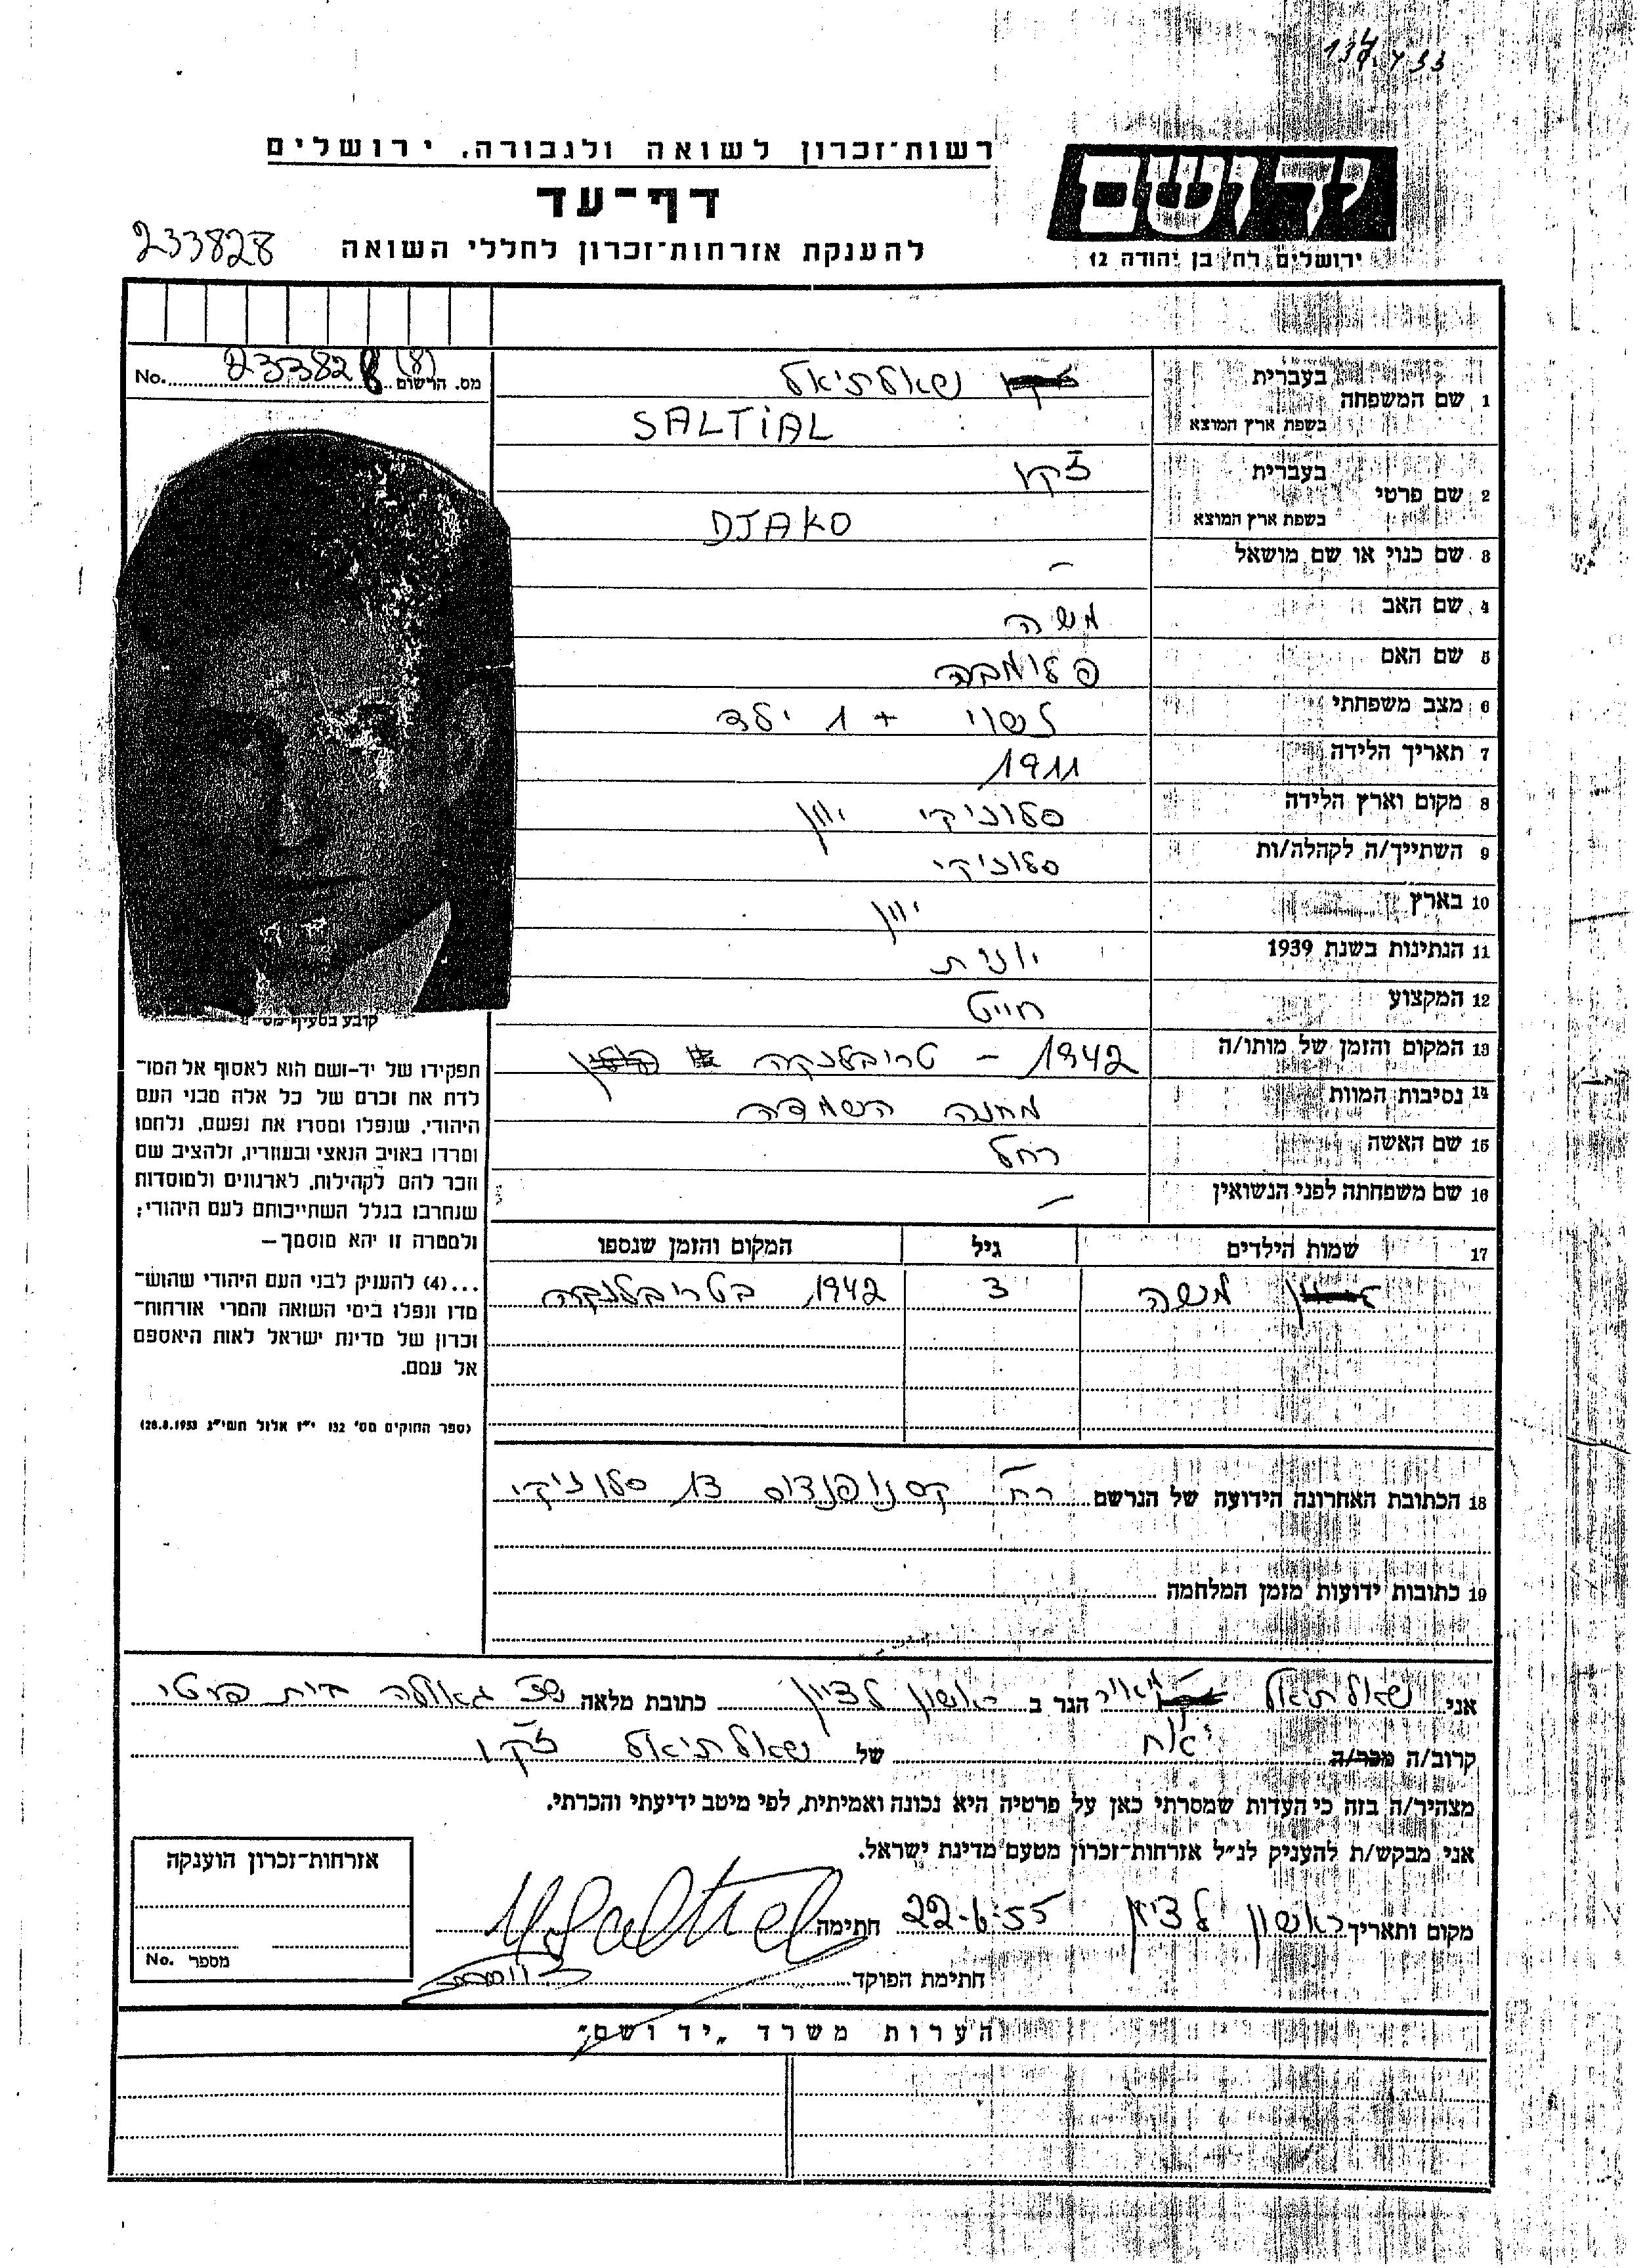 רשות־זכרון לשואה ולגבורה. ירושלים
יד ושם
דף־עד
ירושלים, רח' בן יהודה 12
להענקת אזרחות־זכרון לחללי השואה
233828
No. 233828 (8) מס. הרשום
1 שם המשפחה
בעברית שאלתיאל
בשפת ארץ המוצא SALTiAL
2 שם פרטי
בעברית ז'קו
בשפת ארץ המוצא DJAKO
3 שם כנוי או שם מושאל –
4 שם האב משה
5 שם האם פלומבה
6 מצב משפחתי נשוי + 1 ילד
7 תאריך הלידה 1911
8 מקום וארץ הלידה סלוניקי יוון
9 השתייך/ה לקהלה/ות סלוניקי
10 בארץ יוון
11 הנתינות בשנת 1939 יונית
12 המקצוע חייט
13 המקום והזמן של מותו/ה 1942 – טריבלנקה
14 נסיבות המוות מחנה השמדה
15 שם האשה רחל
16 שם משפחתה לפני הנשואין –
17 שמות הילדים גיל המקום והזמן שנספו
משה 3 1942 בטריבלנקה
קובע בסעיף מס'
תפקידו של יד־ושם הוא לאסוף אל המו־
לדת את זכרם של כל אלה מבני העם
היהודי, שנפלו ומסרו את נפשם, נלחמו
ומרדו באויב הנאצי ובעוזריו, ולהציב שם
וזכר להם לקהילות, לארגונים ולמוסדות
שנחרבו בגלל השתייכותם לעם היהודי;
ולמטרה זו יהא מוסמך—
...(4) להעניק לבני העם היהודי שהוש־
מדו ונפלו בימי השואה והמרי אזרחות־
זכרון של מדינת ישראל לאות היאספם
אל עמם.
(ספר החוקים מס' 132 י"ז אלול תשי"ג 28.8.1953)
18 הכתובת האחרונה הידועה של הנרשם רח' 13 סלוניקי
19 כתובות ידועות מזמן המלחמה
אני שאלתיאל מאיר הגר ב ראשון לציון כתובת מלאה שכ' גאולה בית פרטי
קרוב/ה מכר/ה אח של שאלתיאל ז'קו
מצהיר/ה בזה כי העדות שמסרתי כאן על פרטיה היא נכונה ואמיתית, לפי מיטב ידיעתי והכרתי.
אני מבקש/ת להעניק לנ"ל אזרחות־זכרון מטעם מדינת ישראל.
מקום ותאריך ראשון לציון 22-6-55 חתימה M Saltiel
חתימת הפוקד
אזרחות־זכרון הוענקה
מספר No.
הערות משרד „יד ושם"